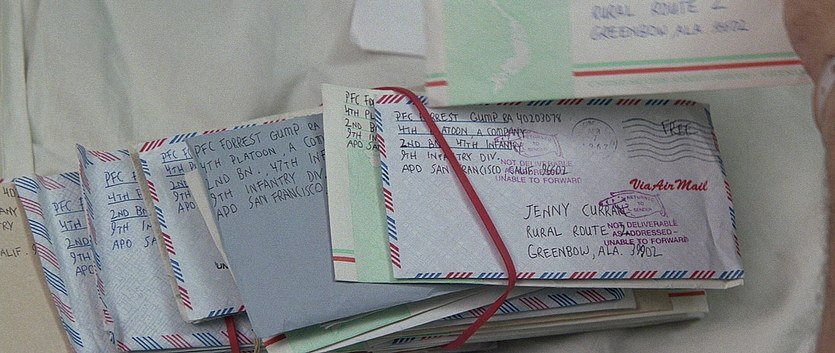 RURAL ROUTE 2
GREENBOW, ALA. 36902
PFC FORREST GUMP RA 40203078
4TH PLATOON, A COMPANY
2ND BN. 47TH INFANTRY
9TH INFANTRY DIV.
APO SAN FRANCISCO CALIF. 96602
NOT DELIVERABLE
AS ADDRESSED -
UNABLE TO FORWARD
FREE
Via Air Mail
RETURNED
TO
SENDER
NOT DELIVERABLE
AS ADDRESSED -
UNABLE TO FORWARD
JENNY CURRAN
RURAL ROUTE 2
GREENBOW, ALA.
PFC FO
4TH PL
2ND BN
9TH IN
APO SA
PFC FORREST GUMP RA
4TH PLATOON, A CO
2ND BN., 47TH INF
9TH INFANTRY DIV
APO SAN FRANCISCO
PFC
4TH
2ND
9TH
APO
UN
PFC F
4TH
2ND BN
9TH IN
APO SA
PFC
4TH
2ND
9TH
APO
ANY
TRY
CALIF.